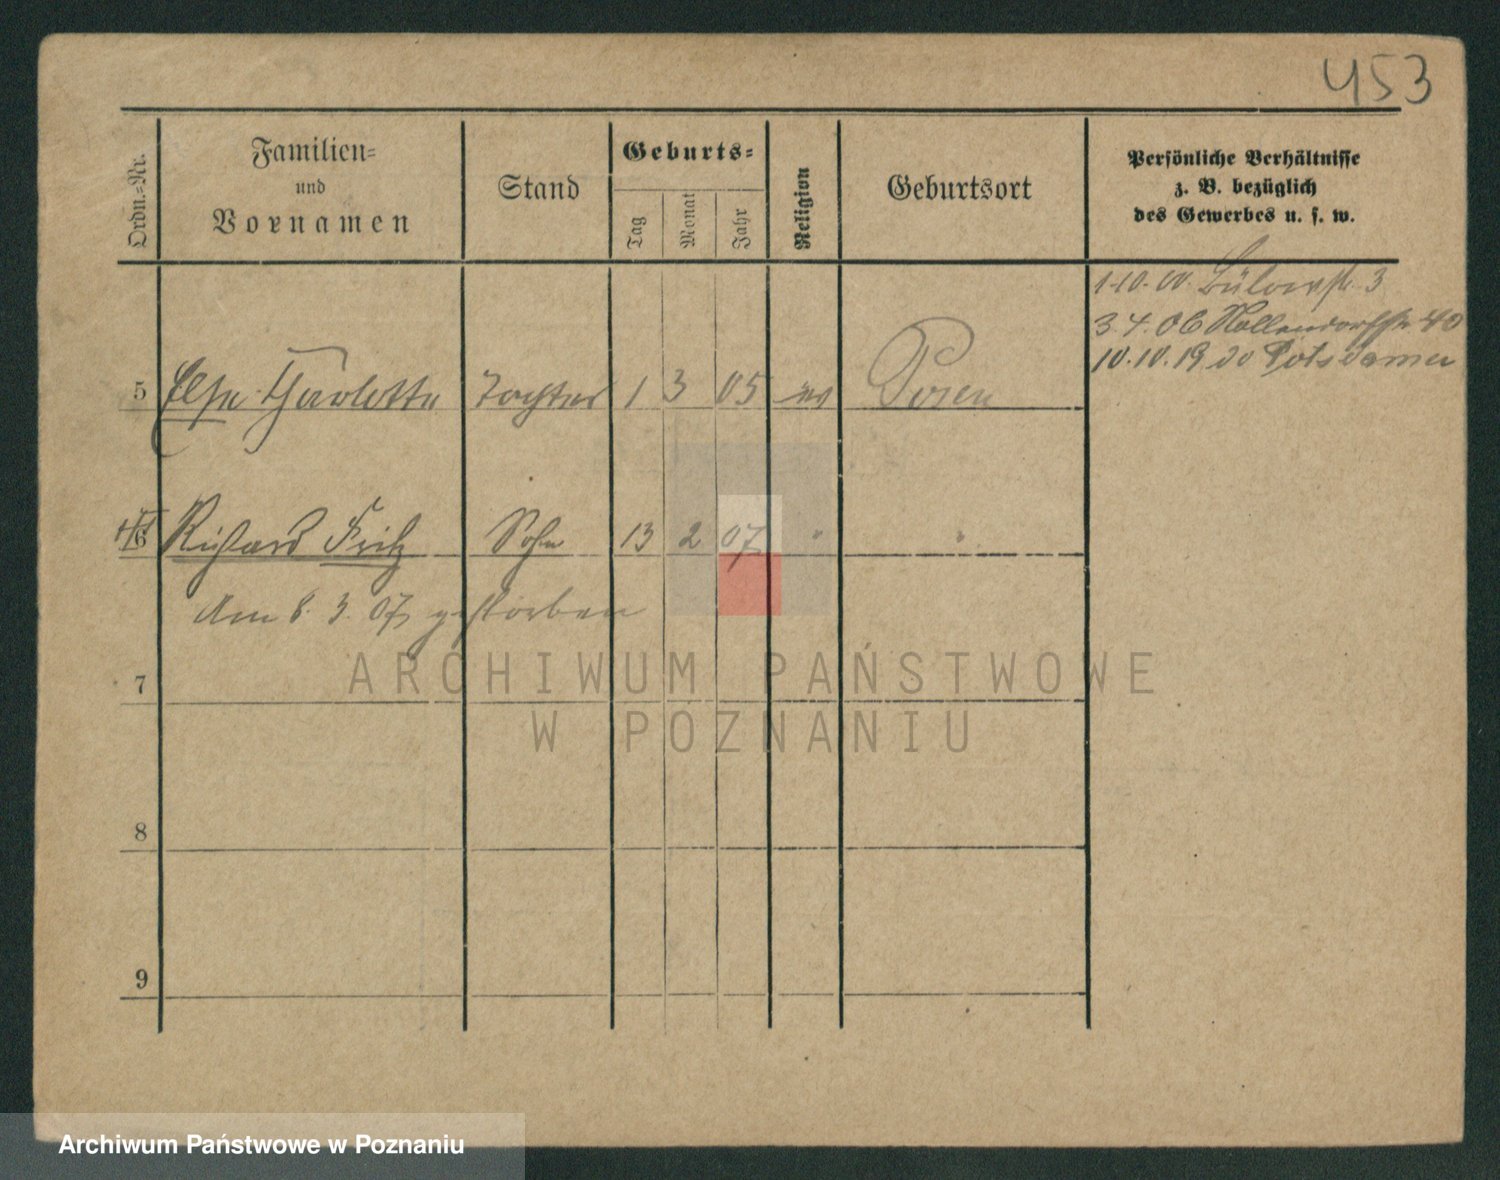 453
Ordn.-Nr.
Familien-
und
Vornamen
Stand
Geburts-
Tag
Monat
Jahr
Religion
Geburtsort
Persönliche Verhältnisse
z. B. bezüglich
des Gewerbes u. s. w.
1.10.00. Bülowstr. 3
3.4.06 Nollendorfstr 40
10.10.19 do Potsdamer
5 Else Charlotte Tochter 1 3 05 ev Posen
6 Richard Fritz Sohn 13 2 07 " "
Am 8.3.07 gestorben
7
8
9
ARCHIWUM PAŃSTWOWE
W POZNANIU
Archiwum Państwowe w Poznaniu